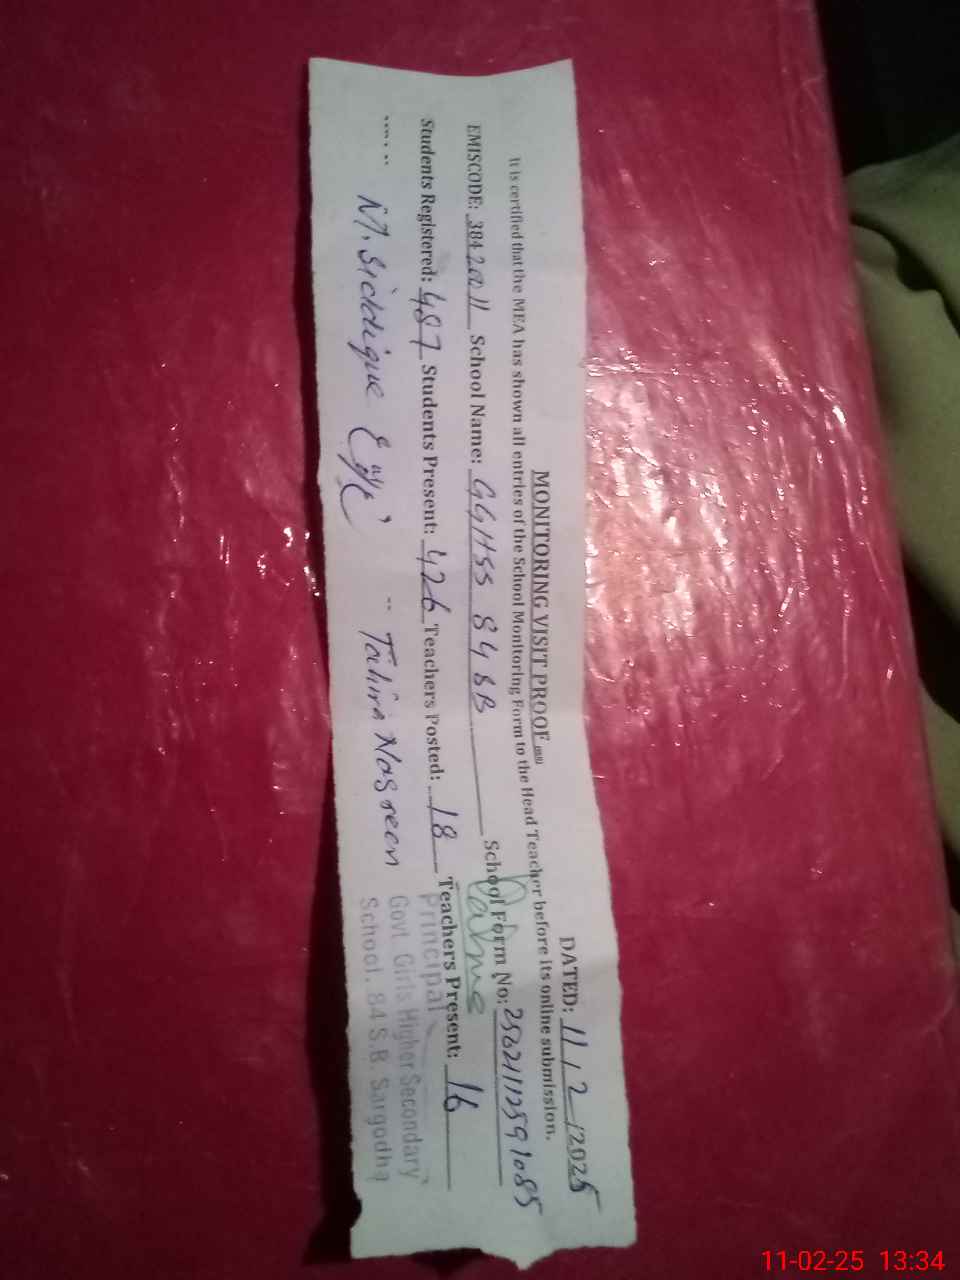 MONITORING VISIT PROOF
DATED: 11/2/2025
It is certified that the MEA has shown all entries of the School Monitoring Form to the Head Teacher before its online submission.
EMISCODE: 38420211 School Name: GGHSS 84 SB School Form No: 
Students Registered: 487 Students Present: 426 Teachers Posted: 18 Teachers Present: 16
M. Siddique Tahira Nasreen
Principal
Govt. Girls Higher Secondary
School. 84 S.B. Sargodha
11-02-25 13:34